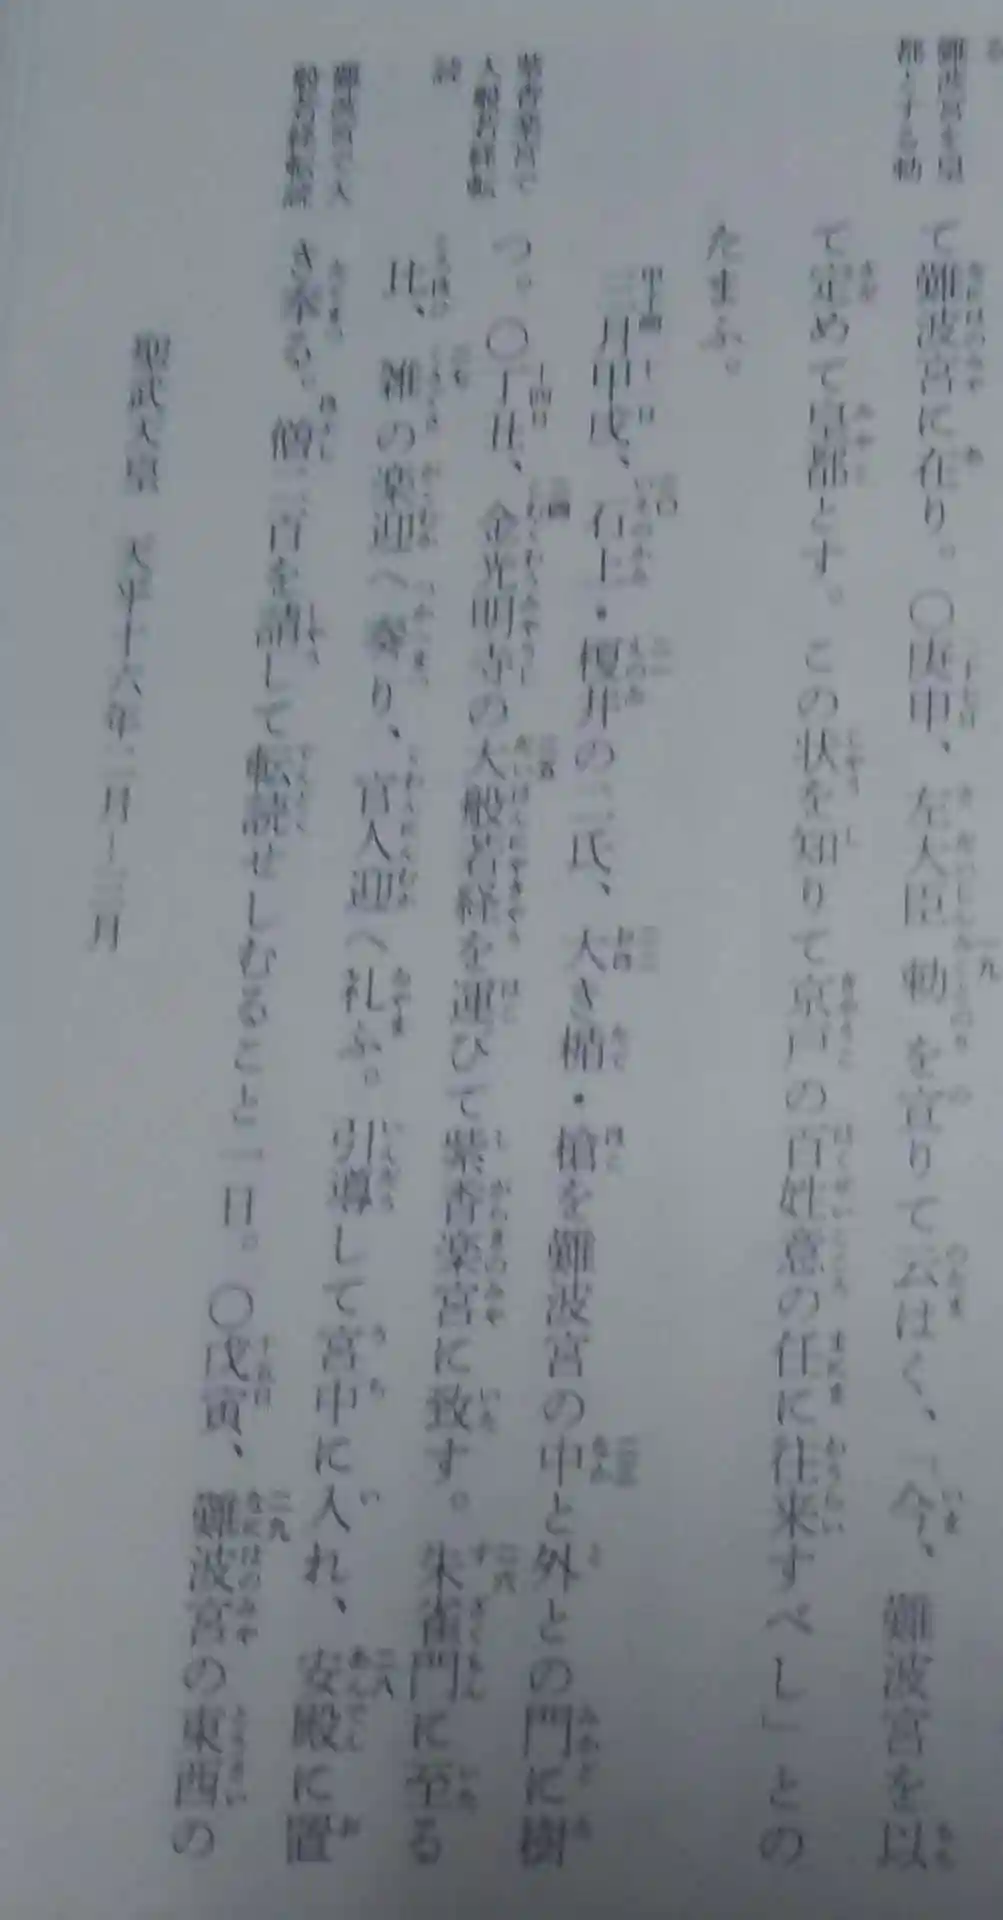 難波宮を皇
都とする勅
て難波宮に在り。〇庚申、左大臣勅を宣りて云はく、「今、難波宮を以
て定めて皇都とす。この状を知りて京戸の百姓意の任に往来すべし」との
たまふ。
三月甲戌、石上・榎井の二氏、大き楯・槍を難波宮の中と外との門に樹
紫香楽宮で
大般若経転
読
つ。〇丁丑、金光明寺の大般若経を運びて紫香楽宮に致す。朱雀門に至る
比、雑の楽迎へ奏り、官人迎へ礼ぶ。引導して宮中に入れ、安殿に置
難波宮で大
般若経転読
き奉る。僧二百を請して転読せしむること一日。〇戊寅、難波宮の東西の
聖武天皇 天平十六年二月―三月